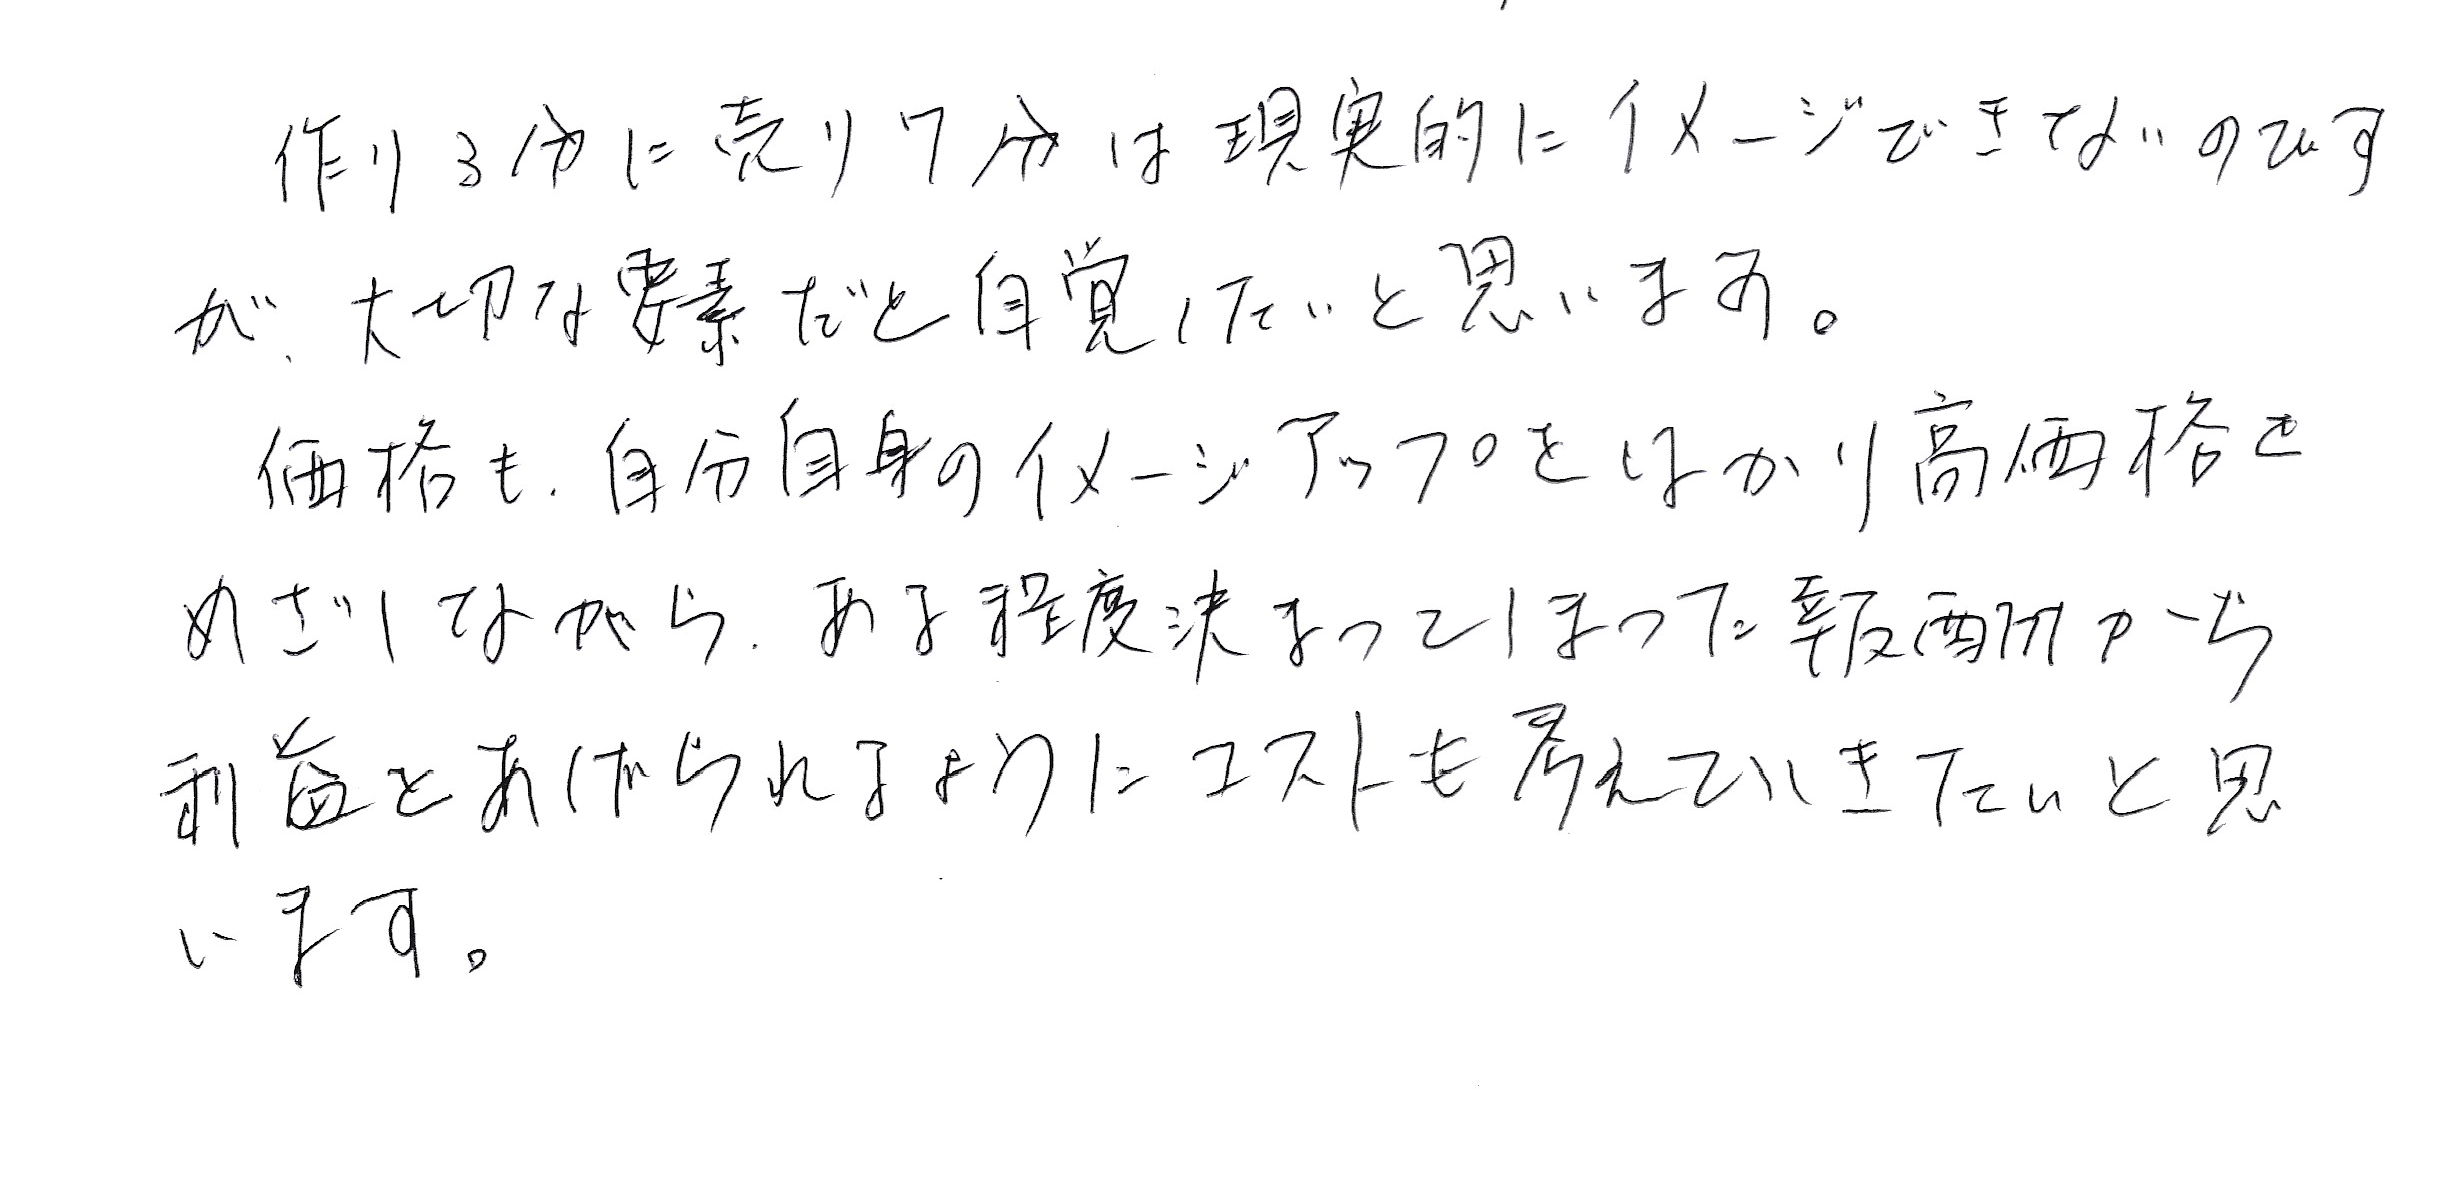 作り3分に売り7分は現実的にイメージできないのです
が、大切な要素だと自覚したいと思います。
価格も、自分自身のイメージアップをはかり高価格を
めざしながら、ある程度決まってしまった報酬から
利益をあげられるようにコストも考えていきたいと思
います。